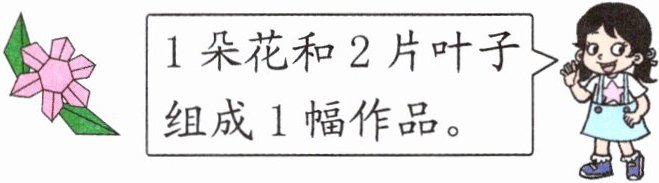 1朵花和2片叶子
组成1幅作品。